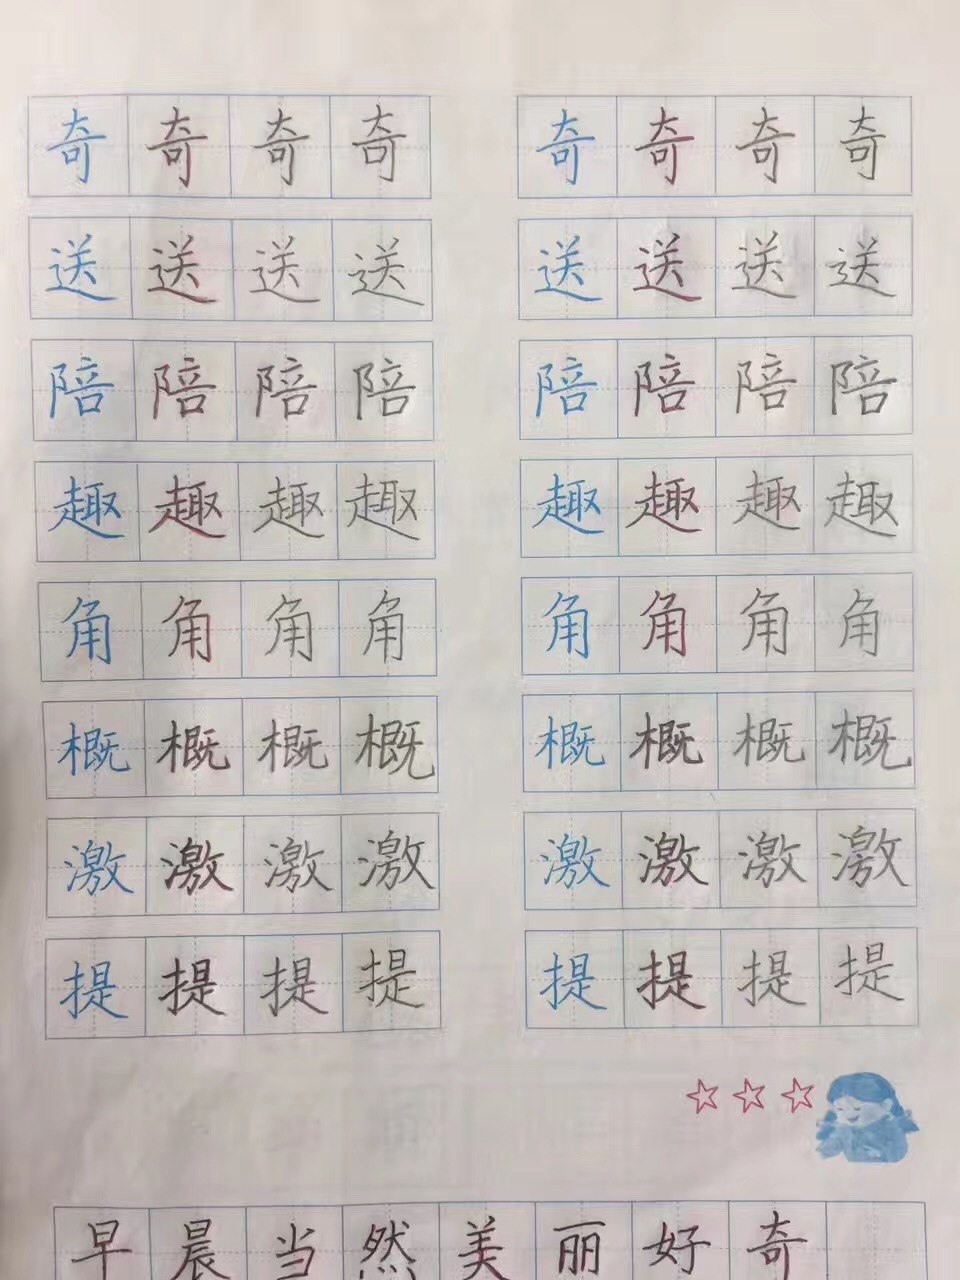 奇奇奇奇 奇奇奇奇
送送送送 送送送送
陪陪陪陪 陪陪陪陪
趣趣趣趣 趣趣趣趣
角角角角 角角角角
概概概概 概概概概
激激激激 激激激激
提提提提 提提提提
早晨当然美丽好奇